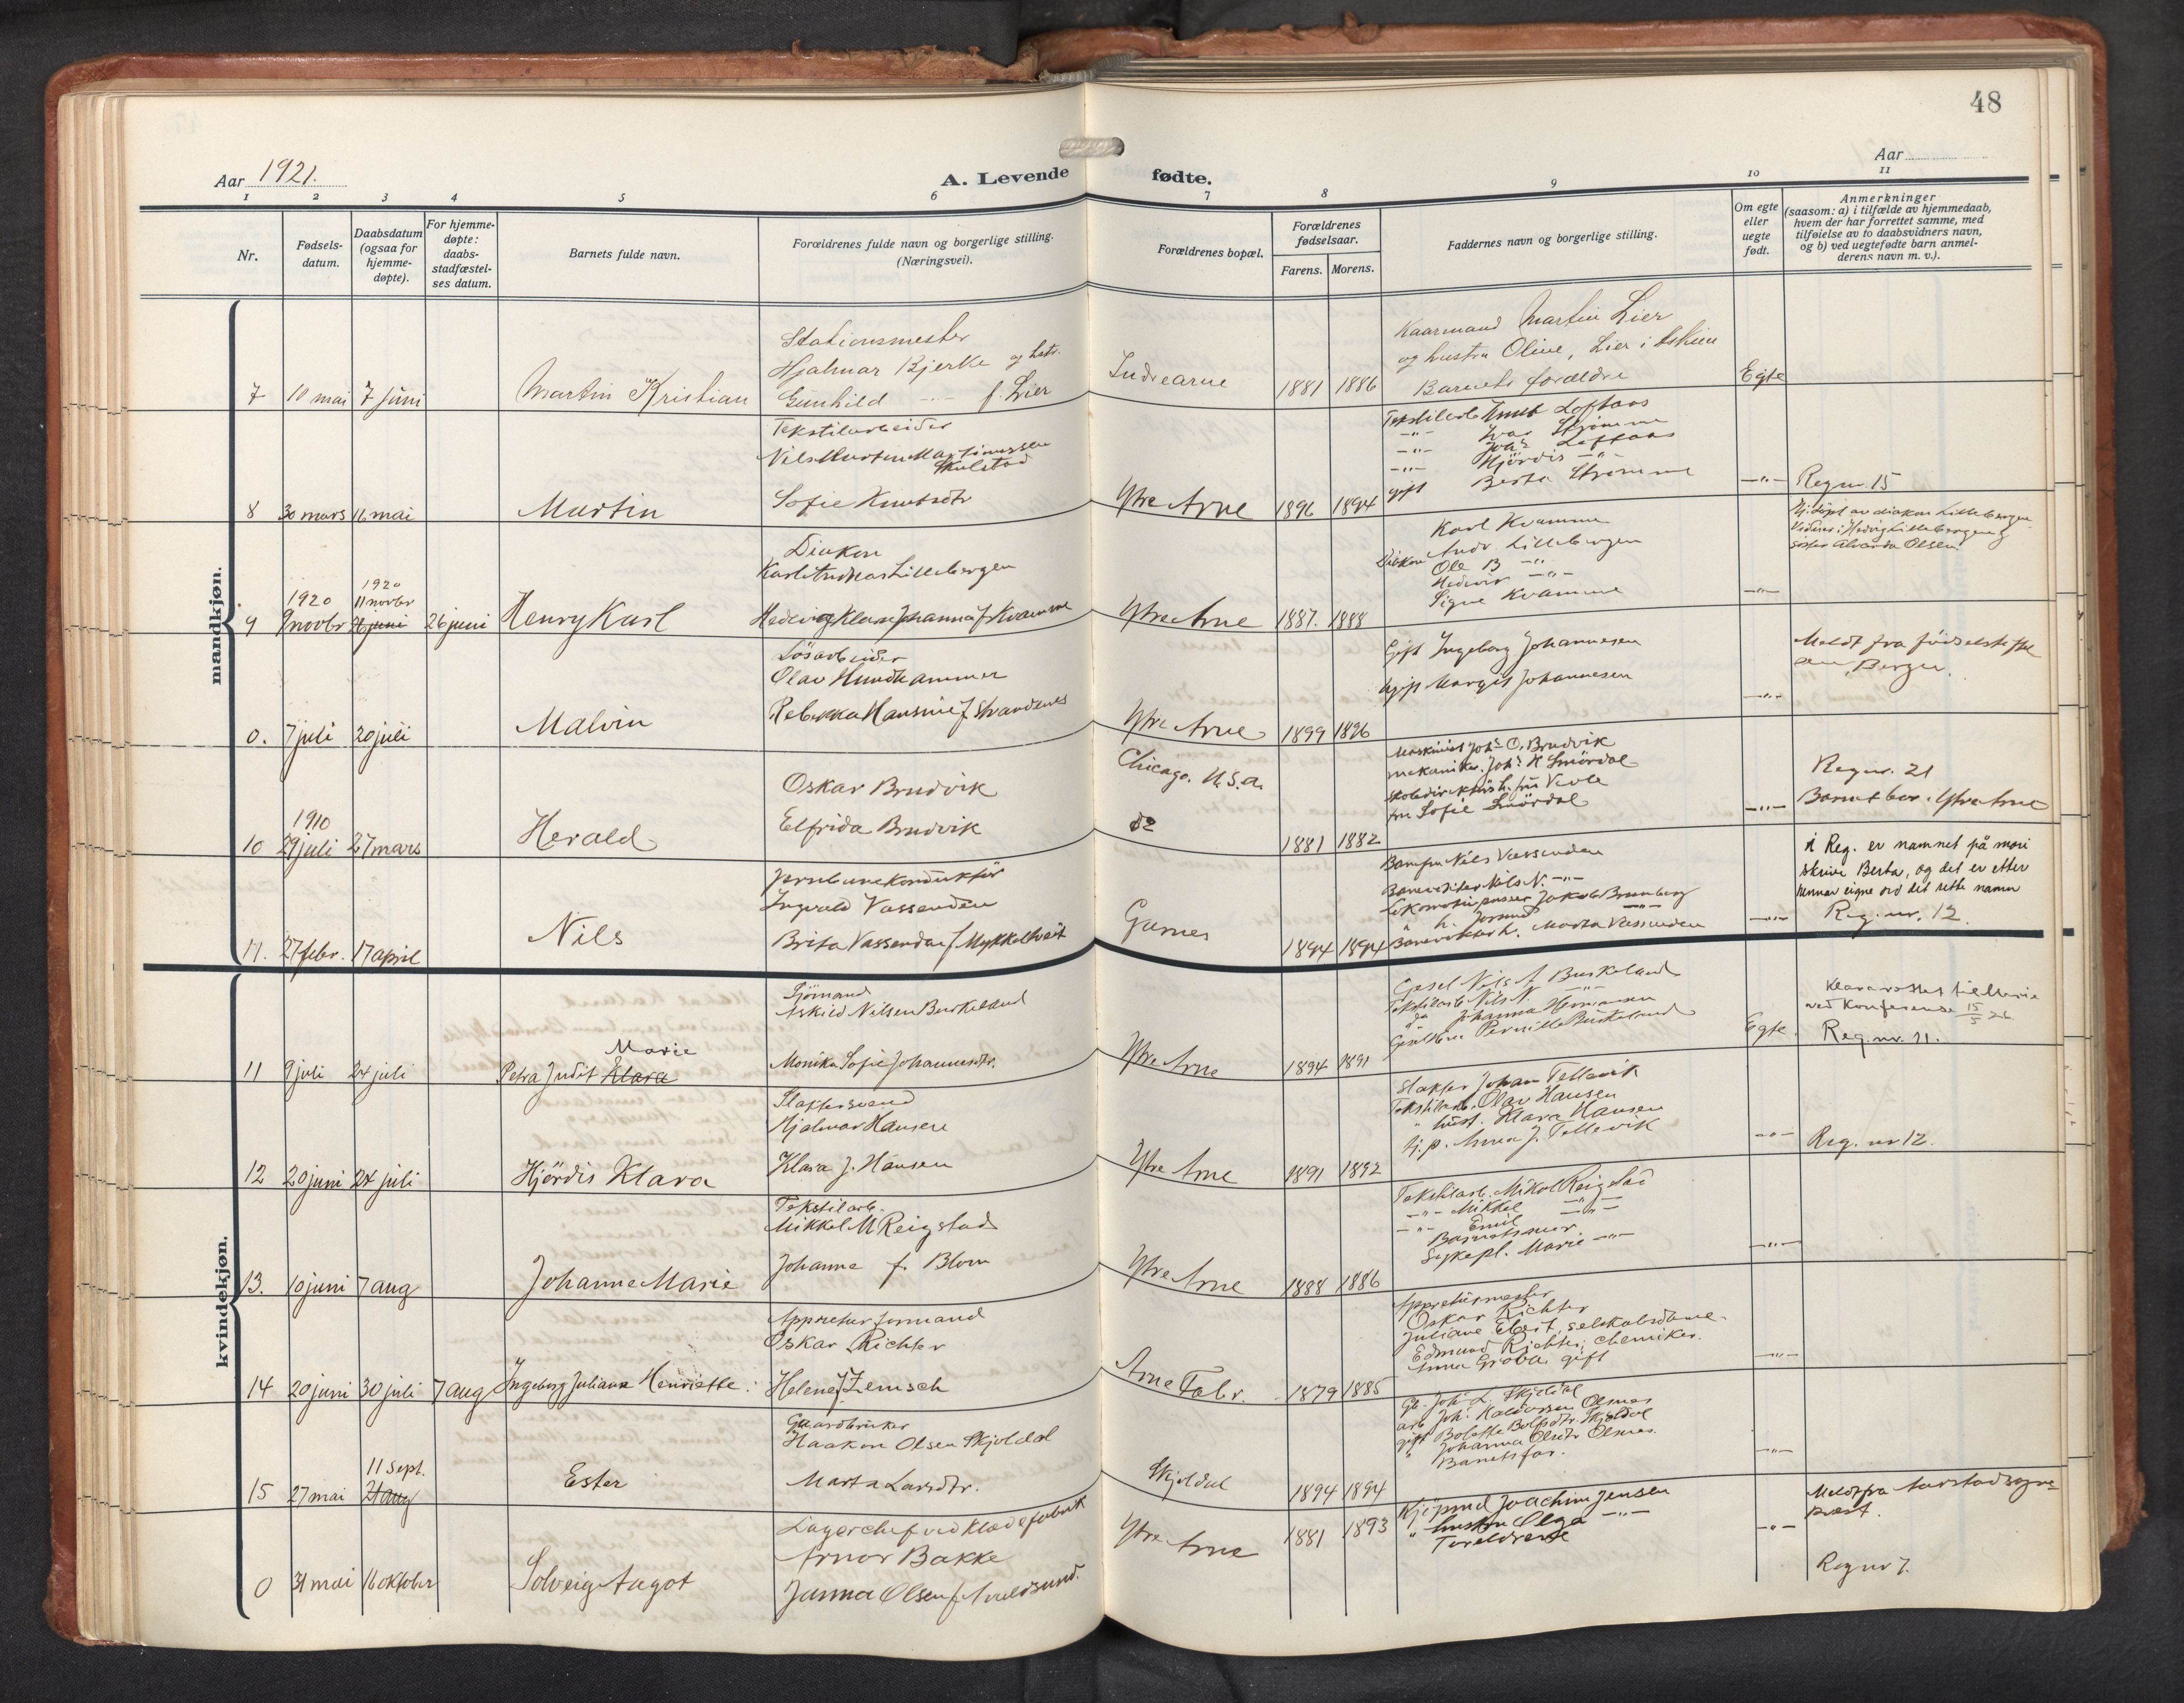 48
Aar 1921.
A. Levende fødte.
Aar
1 2 3 4 5 6 7 8 9 10 11
Nr.
Fødsels-
datum.
Daabsdatum
(ogsaa for
hjemme-
døpte).
For hjemme-
døpte:
daabs-
stadfæstel-
ses datum.
Barnets fulde navn.
Forældrenes fulde navn og borgerlige stilling.
(Næringsvei).
Forældrenes bopæl.
Forældrenes
fødselsaar.
Farens. Morens.
Faddernes navn og borgerlige stilling.
Om egte
eller
uegte
født.
Anmerkninger
(saasom: a) i tilfælde av hjemmedaab,
hvem der har forrettet samme, med
tilføielse av to daabsvidners navn,
og b) ved uegtefødte barn anmel-
derens navn m. v.).
mandkjøn.
7 10 mai 7 juni
Martin Kristian
Stationsmester
Hjalmar Bjerke og hstr.
Gunhild f. Lier
Indrearne
1881 1886
Kaarmand Martin Lier
og hustru Oline, Lier i Askim
Barnets forældre
Egte
8 30 mars 16 mai
Martin
Tekstilarbeider
Nils Martin Martinussen
Skulstad
Sofie Knutsdtr
Ytre Arne
1896 1894
Tekstilarb Knut Loftaas
-"- Ivar Strømme
-"- Johs Loftaas
-"- Hjördis -"-
gift Berta Strømme
-"-
Regnr. 15
9
1920
9 novbr
1920
11 novbr
26 juni
26 juni
Henry Karl
Diakon
Karl Andreas Lillebergen
Hedevig Klara Johanna f Kvamme
Ytre Arne
1887. 1888
Karl Kvamme
Diakon Andr Lillebergen
Ole B -"-
Hedevir -"-
Signe Kvamme
-"-
Hj. døpt av diakon Lillebergen
Vidner: Hedvig Lillebergen &
søster Alvarda Olsen
0. 7 juli 20 juli
Malvin
Løsarbeider
Olav Hundhammer
Rebekka Hansine f Strandenes
Ytre Arne
1899 1896
Gift Ingeborg Johannesen
Ugift Margit Johannesen
-"-
Meldt fra fødselsstiftel
sen, Bergen.
10
1910
29 juli 27 mars
Herald
Oskar Brudvik
Elfrida Brudvik
Chicago. U.S.a.
do
1881 1882
Maskinist Johs O. Brudvik
mekaniker. Johs H Smördal
Skoledirektørsh. fru Veole
fru Sofie Smördal
-"-
Regnr. 21
Barnet bor i Ytre Arne
11. 27 febr. 17 april
Nils
Jernbanekonduktör
Ingvald Vassenden
Brita Vassenden f Mykkeltveit
Garnes
1894 1894
Banefm Nils Vassenden
Banevokter Nils N. -"-
Lokomotivpusser Jakob Brunborg
h. -"-
Banevokterh. Marta Vassenden
-"-
i Reg. er namnet på mori
skrive Berta, og det er etter
hennar eigne ord det rette namn
Reg. nr. 12.
kvindekjøn.
11 9 juli 24 juli
Marie
Petra Judit Klara
Sjömand
Askild Nilsen Burkeland
Monika Sofie Johannesdtr.
Ytre Arne
1894 1891
Gjesel Nils A Burkeland
Tekstilarb. Nils N. -"-
do Johanna Hermansen
Pernille Burkeland
Egte.
Klara rettet til Marie
ved Konferanse 15/5 26
Reg. nr. 11.
12 20 juni 24 juli
Hjördis Klara
Slaktersvend
Hjalmar Hansen
Klara J. Hansen
Ytre Arne
1891 1892
Slakter Johan Tellevik
Tekstilarb. Olav Hansen
" hust. Klara Hansen
Hj. p. Anna J. Tellevik
-"-
Reg. nr 12.
13. 10 juni 7 aug
Johanne Marie
Tekstilarb.
Mikkel M Reigstad
Johanne f. Blom
Ytre Arne
1888 1886
Tekstilarb. Mikal Reigstad
-"- Mikkel -"-
-"- Emil -"-
Barnets mor
Sykepl. Marie -"-
-"-
14 20 juni 30 juli 7 aug
Ingeborg Juliane Henriette.
Appretur formand
Oskar Richter
Helene f Zemsch
Arne Fabr.
1879 1885
Appreturmester
Oskar Richter
Juliane Ebert, selskabsdame.
Edmund Richter, chemiker.
Anna Grova, gift
-"-
15 27 mai
11 Sept.
21 aug
Ester
Gaardbruker
Haakon Olsen Skjoldal
Marta Larsdtr.
Skjoldal
1894 1894
Gb. Johs L. Skjoldal
arb Johs Haldorsen Olsnes
gift Bolette Bolfsdtr. Skjoldal
" Johanna Olsdtr Olsnes.
Barnets far.
-"-
0 31 mai 16 oktober
Solveig Aagot
Lagerchef ved Klædefabrik
Arnor Bakke
Janna Olsen f Aureldsund.
Ytre Arne
1881 1893
Kjöpmd Joachim Jensen
" hustru Olga -"-
Foreldrene
-"-
Meldt fra Aarstad sogne
prest.
Reg nr 7.